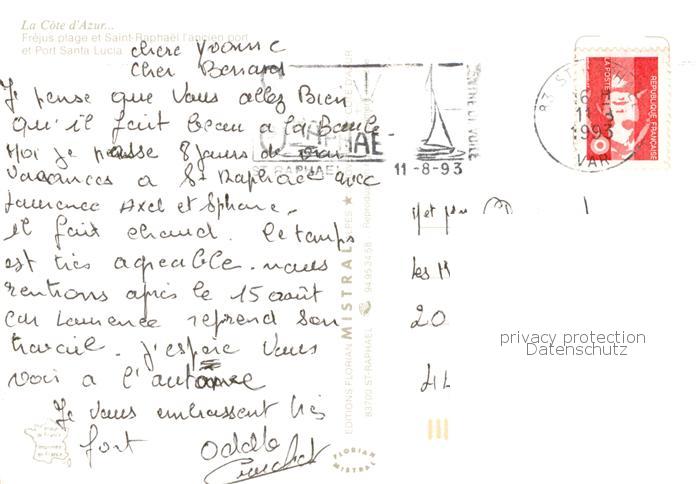 La Côte d'Azur...
Fréjus plage et Saint-Raphaël l'ancien port
et Port Santa Lucia
chere Yvonne
cher Benard
Je pense que Vous allez Bien
Qu'il fait beau a la Baule
Moi je passe 8 jours de
Vacances a St Raphael avec
Laurence Axel et
il fait chaud. le temps
est très agreable. nous
rentrons après le 15 août
car Laurence reprend son
travail. J'espère Vous
voir a l'automne
Je vous embrassent très
fort Odette
RAPHAEL
11-8-93
83 ST
11-8
1993
VAR
LA POSTE
RÉPUBLIQUE FRANÇAISE
EDITIONS FLORIAN MISTRAL
83700 ST-RAPHAËL
94.95.34.58
FLORIAN MISTRAL
Met
les
20
44
privacy protection
Datenschutz